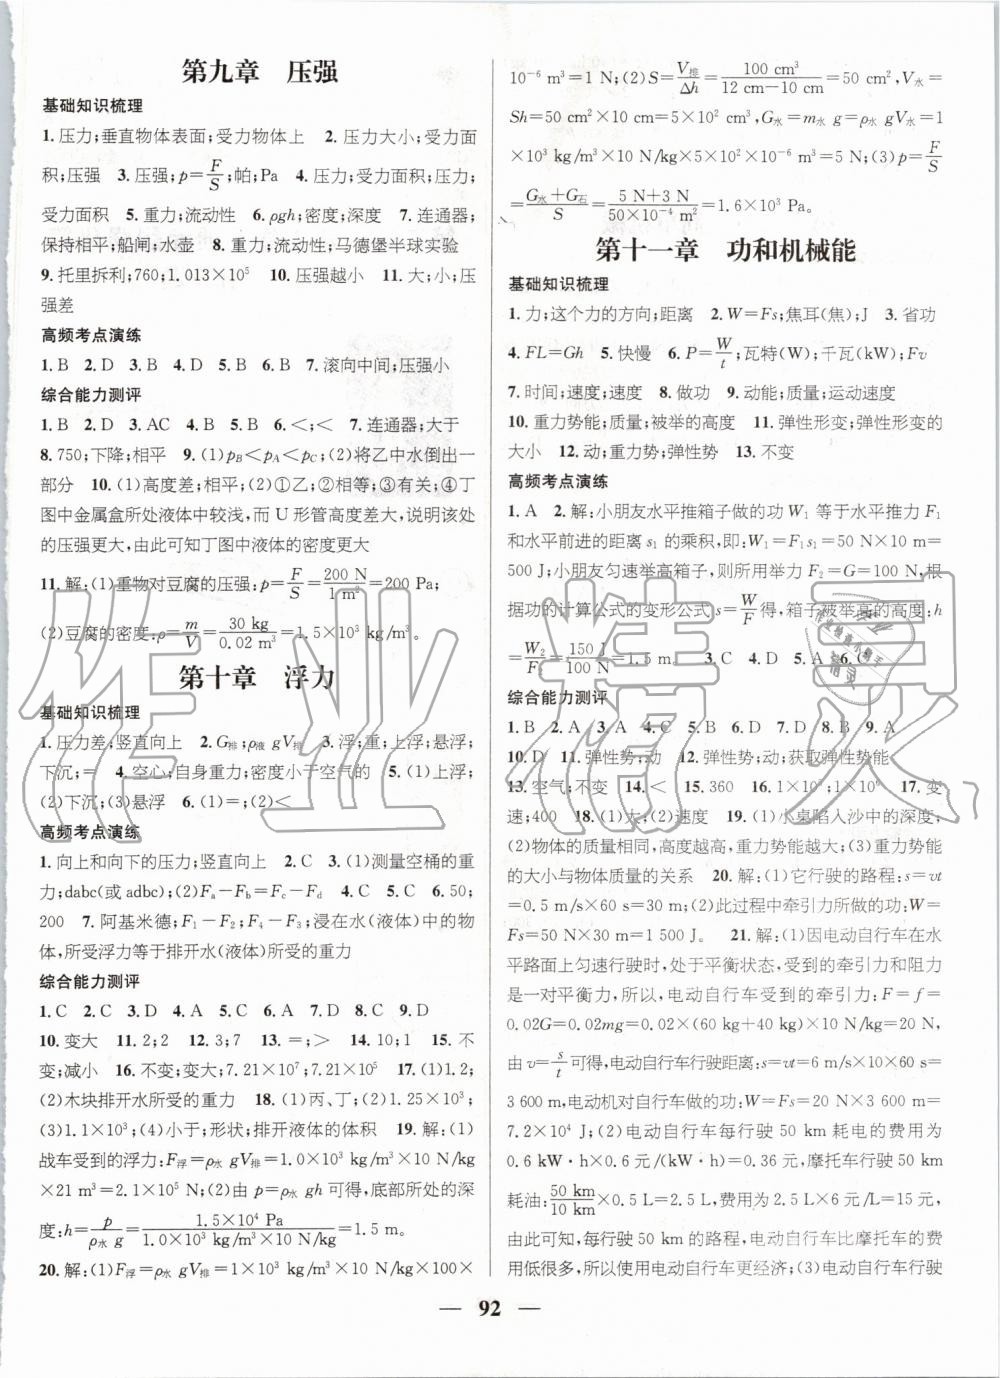 第九章　压强
基础知识梳理
1.压力;垂直物体表面;受力物体上　2.压力大小;受力面
积;压强　3.压强;p=F/S;帕;Pa　4.压力;受力面积;压力;
受力面积　5.重力;流动性　6.ρgh;密度;深度　7.连通器;
保持相平;船闸;水壶　8.重力;流动性;马德堡半球实验
9.托里拆利;760;1.013×10⁵　10.压强越小　11.大;小;压
强差
高频考点演练
1.B　2.D　3.B　4.D　5.B　6.B　7.滚向中间;压强小
综合能力测评
1.B　2.D　3.AC　4.B　5.B　6.<;<　7.连通器;大于
8.750;下降;相平　9.(1)p_B<p_A<p_C;(2)将乙中水倒出一
部分　10.(1)高度差;相平;(2)①乙;②相等;③有关;④丁
图中金属盒所处液体中较浅,而 U 形管高度差大,说明该处
的压强更大,由此可知丁图中液体的密度更大
11.解:(1)重物对豆腐的压强:p=F/S=200 N/1 m²=200 Pa;
(2)豆腐的密度:ρ=m/V=30 kg/0.02 m³=1.5×10³ kg/m³。
第十章　浮力
基础知识梳理
1.压力差;竖直向上　2.G排;ρ液 gV排　3.浮;重;上浮;悬浮;
下沉;=　4.空心;自身重力;密度小于空气的　5.(1)上浮;
(2)下沉;(3)悬浮　6.(1)=;(2)<
高频考点演练
1.向上和向下的压力;竖直向上　2.C　3.(1)测量空桶的重
力;dabc(或 adbc);(2)F_a-F_b=F_c-F_d　4.C　5.C　6.50;
200　7.阿基米德;F₁-F₂;F₄-F₃;浸在水(液体)中的物
体,所受浮力等于排开水(液体)所受的重力
综合能力测评
1.C　2.C　3.D　4.A　5.D　6.A　7.C　8.C　9.D
10.变大　11.2;2　12.3;7　13.=;>　14.10;1　15.不
变;减小　16.不变;变大;7.21×10⁷;7.21×10⁵　17.(1)1.2;
(2)木块排开水所受的重力　18.(1)丙、丁;(2)1.25×10³;
(3)1.1×10³;(4)小于;形状;排开液体的体积　19.解:(1)
战车受到的浮力:F浮=ρ水 gV排=1.0×10³ kg/m³×10 N/kg
×21 m³=2.1×10⁵ N;(2)由 p=ρ水 gh 可得,底部所处的深
度:h=p/ρ水 g=1.5×10⁴ Pa/1.0×10³ kg/m³×10 N/kg=1.5 m。
20.解:(1)F浮=ρ水 gV排=1×10³ kg/m³×10 N/kg×100×
10⁻⁶ m³=1 N;(2)S=V排/Δh=100 cm³/12 cm-10 cm=50 cm²,V水=
Sh=50 cm²×10 cm=5×10² cm³,G水=m水 g=ρ水 gV水=1
×10³ kg/m³×10 N/kg×5×10² cm³=5 N;(3)p=F/S
=G水+G石/S=5 N+3 N/50×10⁻⁴ m²=1.6×10³ Pa。
第十一章　功和机械能
基础知识梳理
1.力;这个力的方向;距离　2.W=Fs;焦耳(焦);J　3.省功
4.FL=Gh　5.快慢　6.P=W/t;瓦特(W);千瓦(kW);Fv
7.时间;速度;速度　8.做功　9.动能;质量;运动速度
10.重力势能;质量;被举的高度　11.弹性形变;弹性形变的
大小　12.动;重力势;弹性势　13.不变
高频考点演练
1.A　2.解:小朋友水平推箱子做的功 W₁ 等于水平推力 F₁
和水平前进的距离 s₁ 的乘积,即:W₁=F₁s₁=50 N×10 m=
500 J;小朋友匀速举高箱子,则所用举力 F₂=G=100 N,根
据功的计算公式的变形公式 s=W/F得,箱子被举高的高度:h
=W₂/F₂=150 J/100 N=1.5 m。　3.C　4.D　5.A　6.
综合能力测评
1.B　2.A　3.A　4.C　5.B　6.D　7.D　8.B　9.A
10.D　11.弹性势;动　12.弹性势;动;获取弹性势能
13.空气;不变　14.<　15.360　16.1×10⁵;1×10⁶　17.变
速;400　18.(1)大;(2)大　19.(1)小桌陷入沙中的深度;
(2)物体的质量相同,高度越高,重力势能越大;(3)重力势能
的大小与物体质量的关系　20.解:(1)它行驶的路程:s=vt
=0.5 m/s×60 s=30 m;(2)此过程中牵引力所做的功:W=
Fs=50 N×30 m=1 500 J。　21.解:(1)因电动自行车在水
平路面上匀速行驶时,处于平衡状态,受到的牵引力和阻力
是一对平衡力,所以,电动自行车受到的牵引力:F=f=
0.02G=0.02mg=0.02×(60 kg+40 kg)×10 N/kg=20 N,
由 v=s/t可得,电动自行车行驶距离:s=vt=6 m/s×10×60 s=
3 600 m,电动机对自行车做的功:W=Fs=20 N×3 600 m=
7.2×10⁴ J;(2)电动自行车每行驶 50 km 耗电的费用为
0.6 kW·h×0.6 元/(kW·h)=0.36 元,摩托车行驶 50 km
耗油:50 km/10 km×0.5 L=2.5 L,费用为 2.5 L×6 元/L=15 元,
由此可知,每行驶 50 km 的路程,电动自行车比摩托车的费
用低很多,所以使用电动自行车更经济;(3)电动自行车行驶
— 92 —
作业精灵